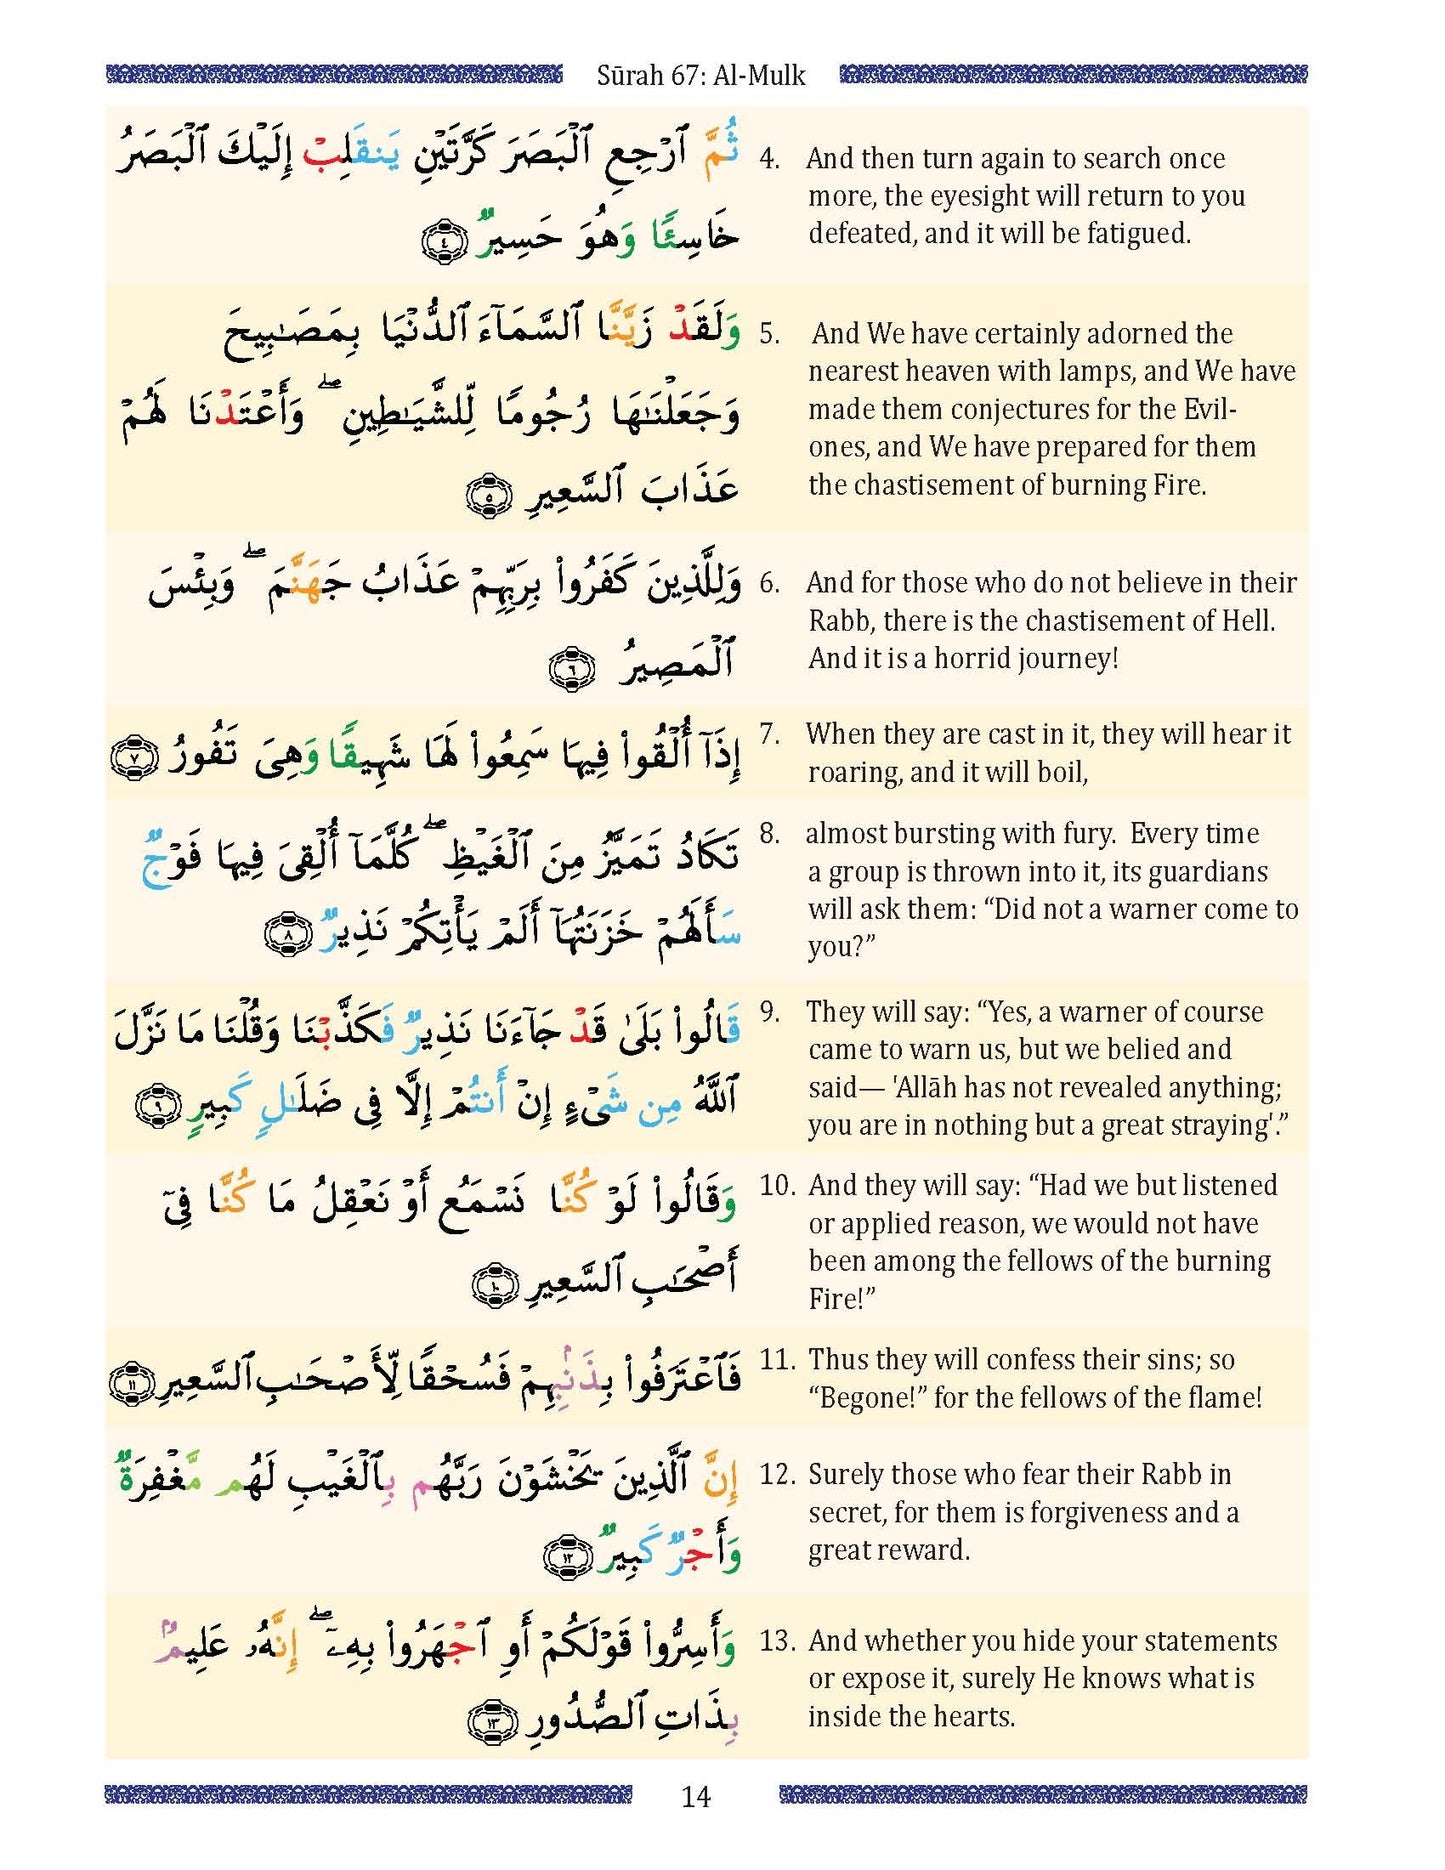 Sūrah 67: Al-Mulk
ثُمَّ ٱرْجِعِ ٱلْبَصَرَ كَرَّتَيْنِ يَنقَلِبْ إِلَيْكَ ٱلْبَصَرُ
خَاسِئًا وَهُوَ حَسِيرٌ ٤
4. And then turn again to search once
more, the eyesight will return to you
defeated, and it will be fatigued.
وَلَقَدْ زَيَّنَّا ٱلسَّمَآءَ ٱلدُّنْيَا بِمَصَـٰبِيحَ
وَجَعَلْنَـٰهَا رُجُومًا لِّلشَّيَـٰطِينِ ۖ وَأَعْتَدْنَا لَهُمْ
عَذَابَ ٱلسَّعِيرِ ٥
5. And We have certainly adorned the
nearest heaven with lamps, and We have
made them conjectures for the Evil-
ones, and We have prepared for them
the chastisement of burning Fire.
وَلِلَّذِينَ كَفَرُوا۟ بِرَبِّهِمْ عَذَابُ جَهَنَّمَ ۖ وَبِئْسَ
ٱلْمَصِيرُ ٦
6. And for those who do not believe in their
Rabb, there is the chastisement of Hell.
And it is a horrid journey!
إِذَآ أُلْقُوا۟ فِيهَا سَمِعُوا۟ لَهَا شَهِيقًا وَهِىَ تَفُورُ ٧
7. When they are cast in it, they will hear it
roaring, and it will boil,
تَكَادُ تَمَيَّزُ مِنَ ٱلْغَيْظِ ۖ كُلَّمَآ أُلْقِىَ فِيهَا فَوْجٌ
سَأَلَهُمْ خَزَنَتُهَآ أَلَمْ يَأْتِكُمْ نَذِيرٌ ٨
8. almost bursting with fury. Every time
a group is thrown into it, its guardians
will ask them: “Did not a warner come to
you?”
قَالُوا۟ بَلَىٰ قَدْ جَآءَنَا نَذِيرٌ فَكَذَّبْنَا وَقُلْنَا مَا نَزَّلَ
ٱللَّهُ مِن شَىْءٍ إِنْ أَنتُمْ إِلَّا فِى ضَلَـٰلٍ كَبِيرٍ ٩
9. They will say: “Yes, a warner of course
came to warn us, but we belied and
said— 'Allāh has not revealed anything;
you are in nothing but a great straying'.”
وَقَالُوا۟ لَوْ كُنَّا نَسْمَعُ أَوْ نَعْقِلُ مَا كُنَّا فِىٓ
أَصْحَـٰبِ ٱلسَّعِيرِ ١٠
10. And they will say: “Had we but listened
or applied reason, we would not have
been among the fellows of the burning
Fire!”
فَٱعْتَرَفُوا۟ بِذَنۢبِهِمْ فَسُحْقًا لِّأَصْحَـٰبِ ٱلسَّعِيرِ ١١
11. Thus they will confess their sins; so
“Begone!” for the fellows of the flame!
إِنَّ ٱلَّذِينَ يَخْشَوْنَ رَبَّهُم بِٱلْغَيْبِ لَهُم مَّغْفِرَةٌ
وَأَجْرٌ كَبِيرٌ ١٢
12. Surely those who fear their Rabb in
secret, for them is forgiveness and a
great reward.
وَأَسِرُّوا۟ قَوْلَكُمْ أَوِ ٱجْهَرُوا۟ بِهِۦٓ ۖ إِنَّهُۥ عَلِيمٌۢ
بِذَاتِ ٱلصُّدُورِ ١٣
13. And whether you hide your statements
or expose it, surely He knows what is
inside the hearts.
14